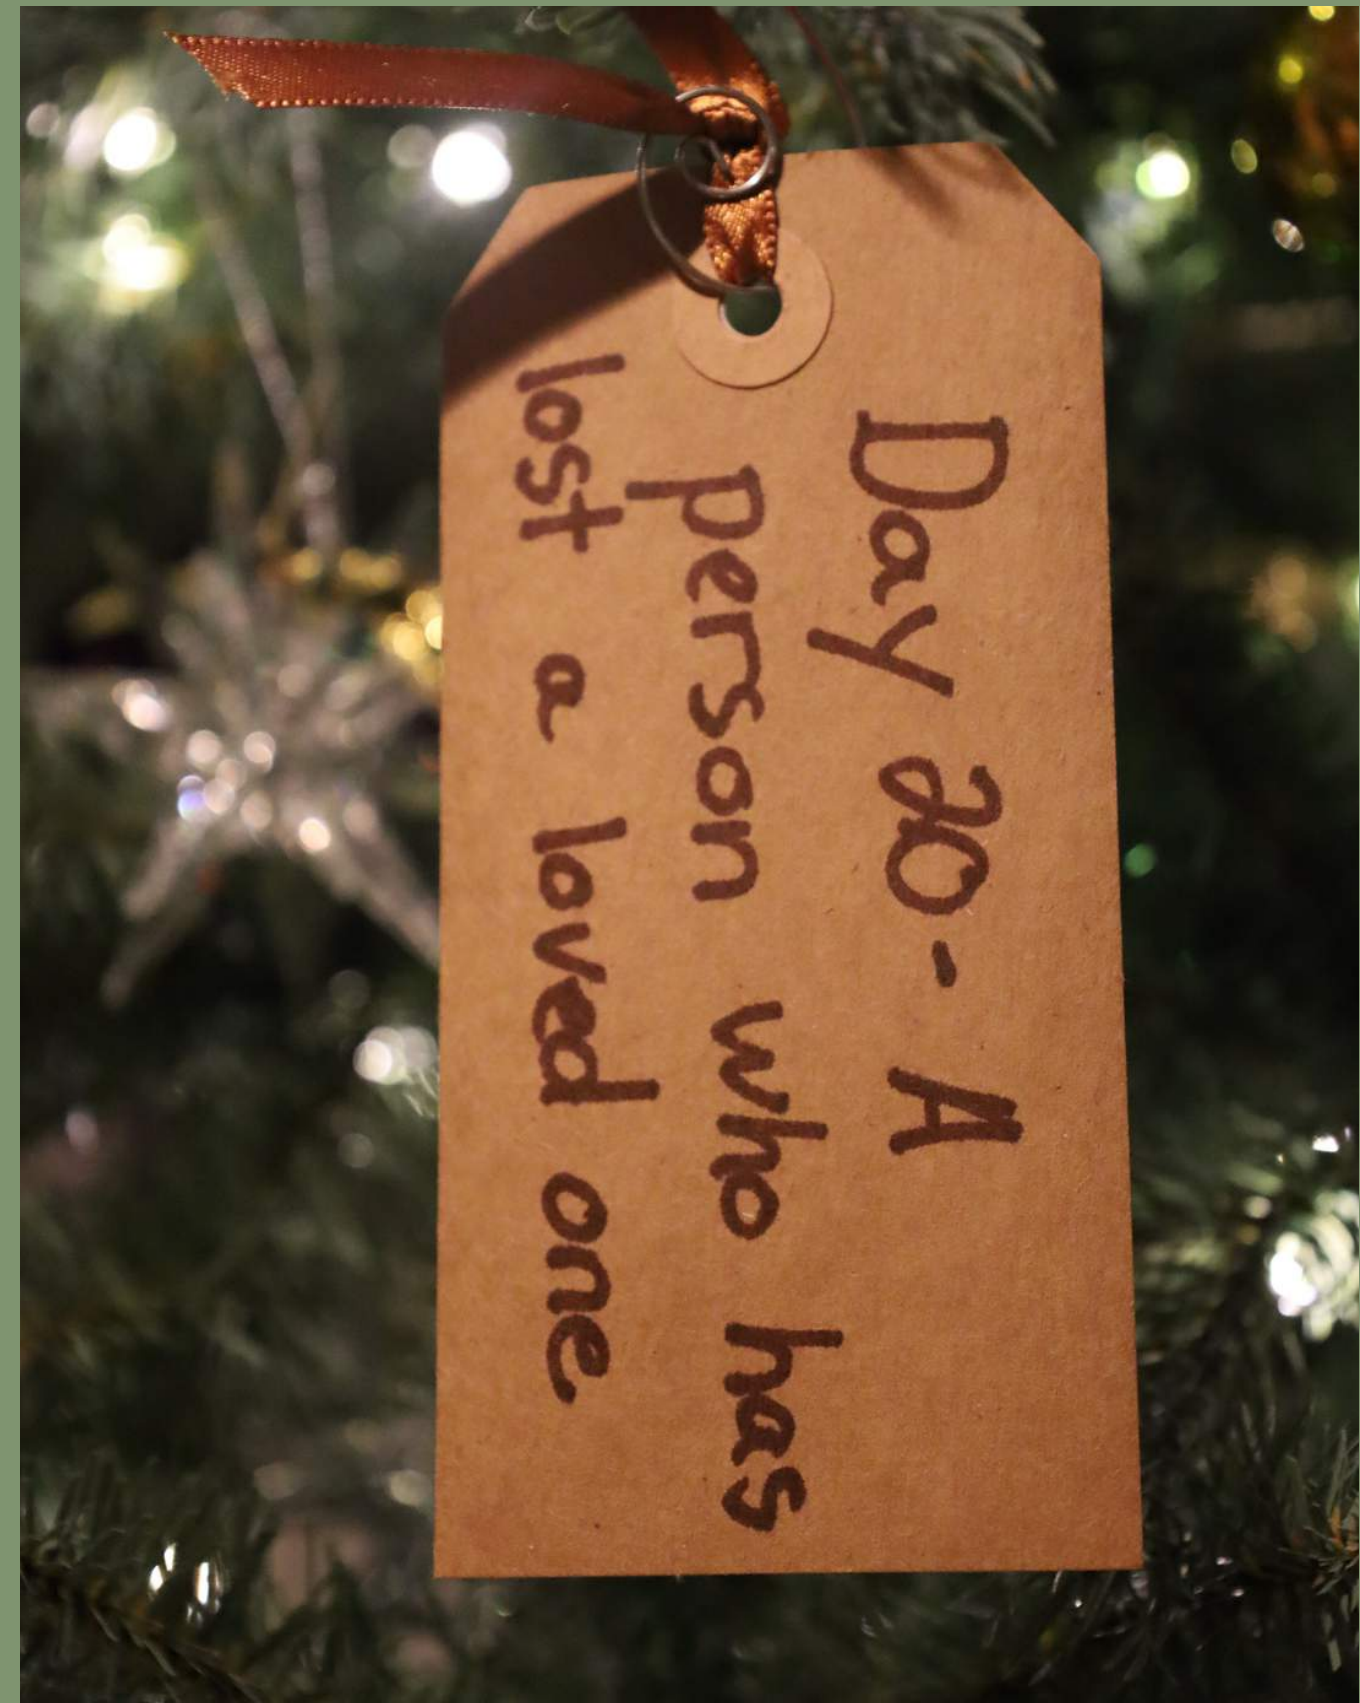 Day 20- A
person who has
lost a loved one